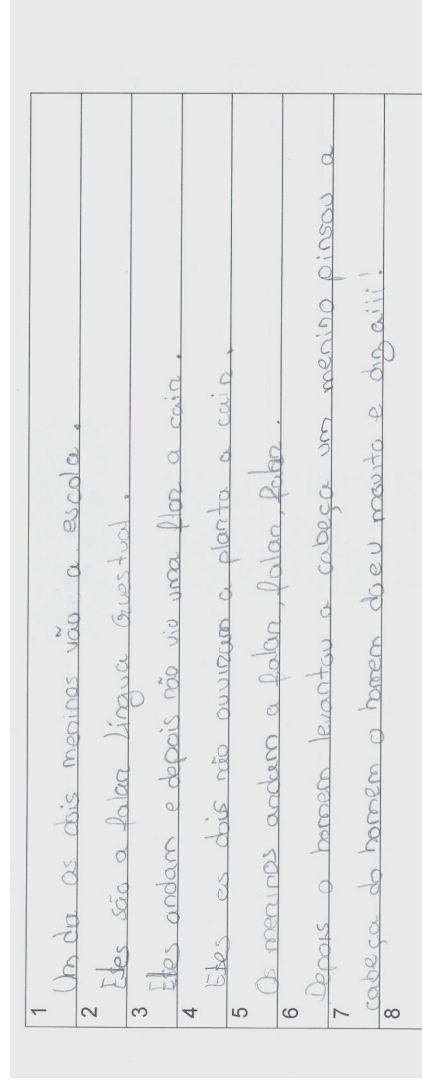 1
Um dia os dois meninos vão a escola.
2
Eles são a falar língua Questual.
3
Eles andam e depois não viu uma flor a cair.
4
Eles os dois não ouviram a planta a cair.
5
Os meninos andam a falar, falar, falar.
6
Depois o homem levantou a cabeça um menino pinsou a
7
cabeça do homem o homem doeu mauito e diz aiii!
8